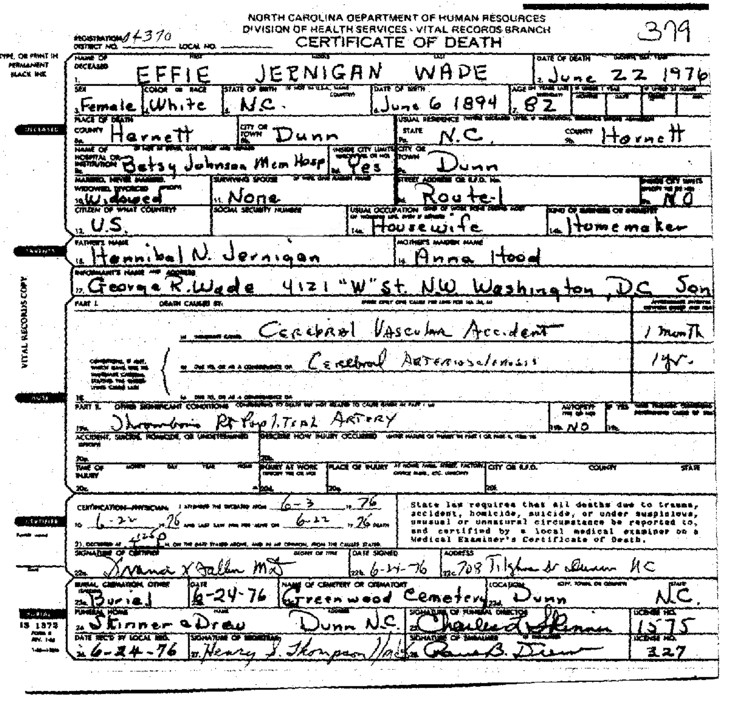 NORTH CAROLINA DEPARTMENT OF HUMAN RESOURCES
DIVISION OF HEALTH SERVICES - VITAL RECORDS BRANCH
CERTIFICATE OF DEATH
379
REGISTRATION DISTRICT NO. 4370 LOCAL NO.
TYPE, OR PRINT IN PERMANENT BLACK INK
NAME OF DECEASED FIRST MIDDLE LAST DATE OF DEATH
1. EFFIE JERNIGAN WADE 2. June 22 1976
SEX COLOR OR RACE STATE OF BIRTH DATE OF BIRTH
3. Female 4. White N.C. June 6 1894 7. 82
PLACE OF DEATH USUAL RESIDENCE
COUNTY Harnett CITY OR TOWN Dunn STATE N.C. COUNTY Harnett
NAME OF HOSPITAL OR INSTITUTION Betsy Johnson Mem Hosp INSIDE CITY LIMITS Yes CITY OR TOWN Dunn
MARRIED, NEVER MARRIED, WIDOWED, DIVORCED SURVIVING SPOUSE STREET ADDRESS OR R.F.D. NO. INSIDE CITY LIMITS
10. Widowed 11. None Route-1 NO
CITIZEN OF WHAT COUNTRY? SOCIAL SECURITY NUMBER USUAL OCCUPATION KIND OF BUSINESS OR INDUSTRY
12. U.S. 14a. Housewife 14b. Homemaker
FATHER'S NAME MOTHER'S MAIDEN NAME
15. Hannibal N. Jernigan 16. Anna Hood
INFORMANT'S NAME AND ADDRESS
17. George R. Wade 4121 "W" St. NW Washington, DC Son
PART I. DEATH CAUSED BY:
VITAL RECORDS COPY
Cerebral Vascular Accident 1 month
DUE TO, OR AS A CONSEQUENCE OF Cerebral Arteriosclerosis 1 yr.
DUE TO, OR AS A CONSEQUENCE OF
18.
PART II. OTHER SIGNIFICANT CONDITIONS AUTOPSY
19a. Thrombosis Rt Popliteal Artery 19b. NO
ACCIDENT, SUICIDE, HOMICIDE, OR UNDETERMINED DESCRIBE HOW INJURY OCCURRED
20a.
TIME OF INJURY MONTH DAY YEAR HOUR INJURY AT WORK PLACE OF INJURY CITY OR R.F.D. COUNTY STATE
20c. 20d. 20f.
CERTIFICATION-PHYSICIAN: I ATTENDED THE DECEASED FROM 6-3 19 76
TO 6-22 19 76 AND LAST SAW HIM OR HER ALIVE ON 6-22 19 76
State law requires that all deaths due to trauma,
accident, homicide, suicide, or under suspicious,
unusual or unnatural circumstance be reported to,
and certified by a local medical examiner on a
Medical Examiner's Certificate of Death.
21. DEATH OCCURRED AT M. ON THE DATE STATED ABOVE, AND IN MY OPINION, FROM THE CAUSES STATED.
SIGNATURE OF CERTIFIER DEGREE OR TITLE DATE SIGNED ADDRESS
22a. MD 22b. 6-24-76 22c. 708 Tilghman Dr Dunn NC
BURIAL, CREMATION, OTHER DATE NAME OF CEMETERY OR CREMATORY LOCATION CITY, TOWN, OR COUNTY STATE
Burial 6-24-76 Greenwood Cemetery Dunn N.C.
FUNERAL HOME NAME ADDRESS SIGNATURE OF FUNERAL DIRECTOR LICENSE NO.
24. Skinner & Drew Dunn N.C. 25. Charles Skinner 1575
DATE REC'D BY LOCAL REG. SIGNATURE OF REGISTRAR SIGNATURE OF EMBALMER LICENSE NO.
26. 6-24-76 27. Henry S. Thompson B. Drew 327